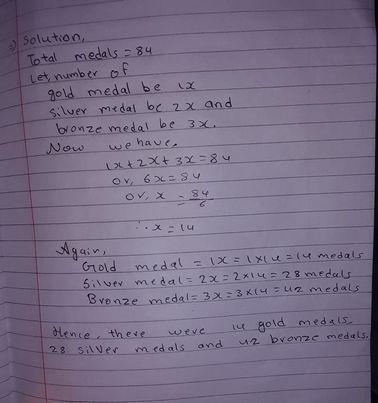 =) Solution,
Total medals = 84
Let, number of
gold medal be 1x
silver medal be 2x and
bronze medal be 3x.
Now we have,
1x + 2x + 3x = 84
or, 6x = 84
or, x = 84/6
∴ x = 14
Again,
Gold medal = 1x = 1x14 = 14 medals
Silver medal = 2x = 2x14 = 28 medals
Bronze medal = 3x = 3x14 = 42 medals
Hence, there were 14 gold medals,
28 silver medals and 42 bronze medals.